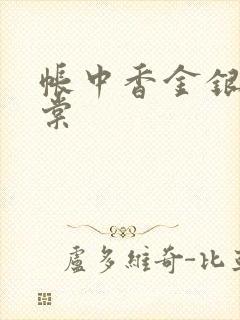 帳中香金銀
棠
盧多維奇-比亞